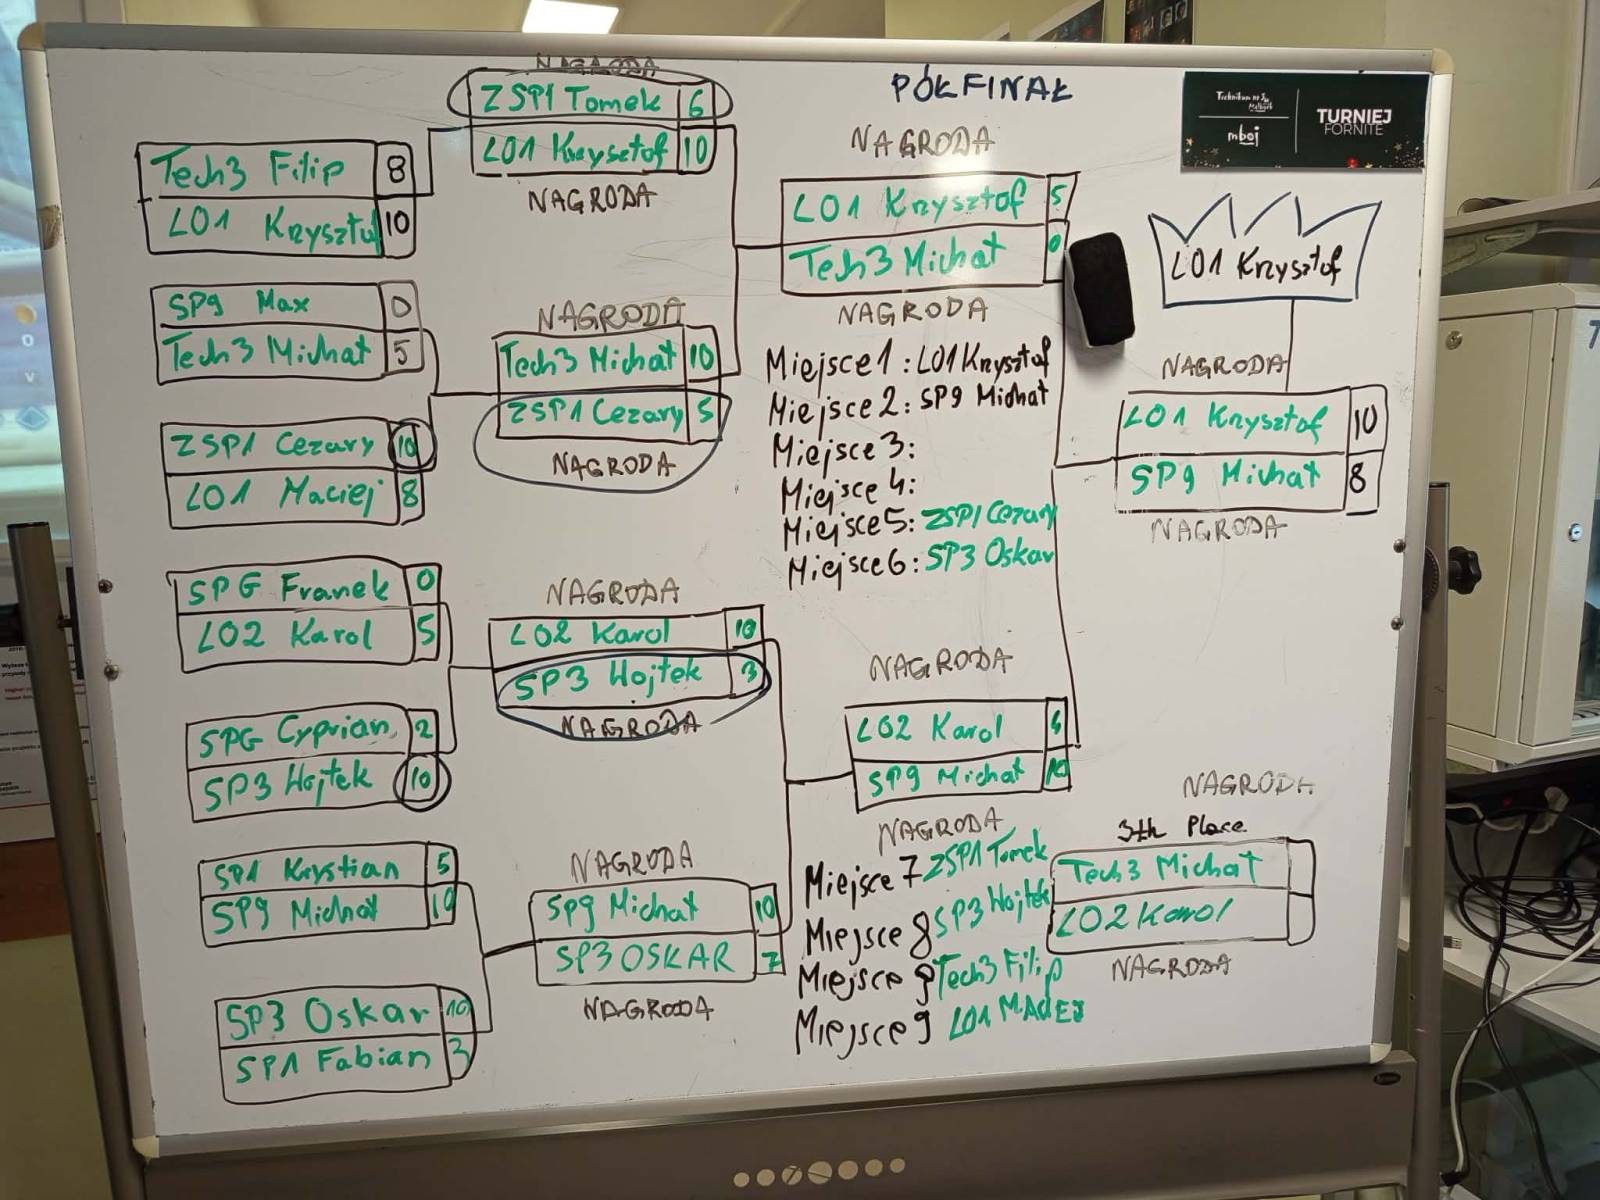 NAGRODA
ZSP1 Tomek 6
LO1 Krzysztof 10
NAGRODA
Tech3 Filip 8
LO1 Krzysztof 10
SP9 Max 0
Tech3 Michał 5
NAGRODA
Tech3 Michał 10
ZSP1 Cezary 5
NAGRODA
ZSP1 Cezary 10
LO1 Maciej 8
SPG Franek 0
LO2 Karol 5
NAGRODA
LO2 Karol 10
SP3 Wojtek 3
NAGRODA
SPG Cyprian 2
SP3 Wojtek 10
SP1 Krystian 5
SP9 Michał 10
NAGRODA
SP9 Michał 10
SP3 OSKAR 7
NAGRODA
SP3 Oskar 10
SP1 Fabian 3
PÓŁFINAŁ
NAGRODA
LO1 Krzysztof 5
Tech3 Michał 0
NAGRODA
Miejsce 1: LO1 Krzysztof
Miejsce 2: SP9 Michał
Miejsce 3:
Miejsce 4:
Miejsce 5: ZSP1 Cezary
Miejsce 6: SP3 Oskar
NAGRODA
LO2 Karol
SP9 Michał 10
NAGRODA
Miejsce 7 ZSP1 Tomek
Miejsce 8 SP3 Wojtek
Miejsce 9 Tech3 Filip
Miejsce 9 LO1 MACIEJ
mboj
TURNIEJ
FORNITE
LO1 Krzysztof
NAGRODA
LO1 Krzysztof 10
SP9 Michał 8
NAGRODA
NAGRODA
3th Place
Tech3 Michał
LO2 Karol
NAGRODA